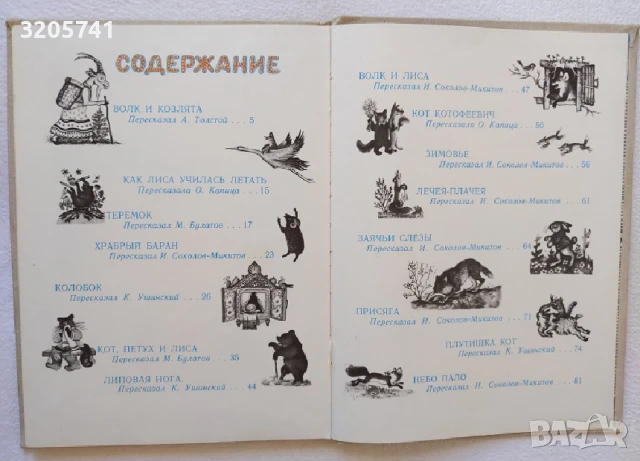 3205741
СОДЕРЖАНИЕ
ВОЛК И КОЗЛЯТА
Пересказал А. Толстой . . . 5
КАК ЛИСА УЧИЛАСЬ ЛЕТАТЬ
Пересказала О. Капица . . . 15
ТЕРЕМОК
Пересказал М. Булатов . . . 17
ХРАБРЫЙ БАРАН
Пересказал И. Соколов-Микитов . . . 23
КОЛОБОК
Пересказал К. Ушинский . . . 26
КОТ, ПЕТУХ И ЛИСА
Пересказал М. Булатов . . . 35
ЛИПОВАЯ НОГА
Пересказал К. Ушинский . . . 44
ВОЛК И ЛИСА
Пересказал И. Соколов-Микитов . . . 47
КОТ КОТОФЕЕВИЧ
Пересказала О. Капица . . . 50
ЗИМОВЬЕ
Пересказал И. Соколов-Микитов . . . 56
ЛЕЧЕЯ-ПЛАЧЕЯ
Пересказал И. Соколов-Микитов . . . 61
ЗАЯЧЬИ СЛЁЗЫ
Пересказал И. Соколов-Микитов . . . 64
ПРИСЯГА
Пересказал И. Соколов-Микитов . . . 71
ПЛУТИШКА КОТ
Пересказал К. Ушинский . . . 74
НЕБО ПАЛО
Пересказал И. Соколов-Микитов . . . 81
BAZAR